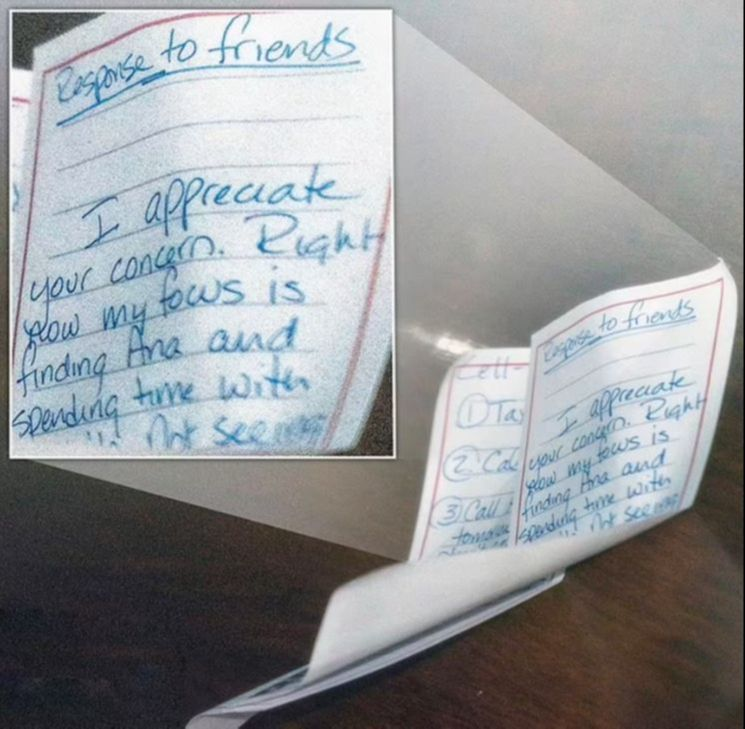 Response to friends
I appreciate
your concern. Right
now my focus is
finding Ana and
spending time with
Not
Cell-
① Ta
② Cal
③ Call
Response to friends
I appreciate
your concern. Right
now my focus is
finding Ana and
spending time with
Not